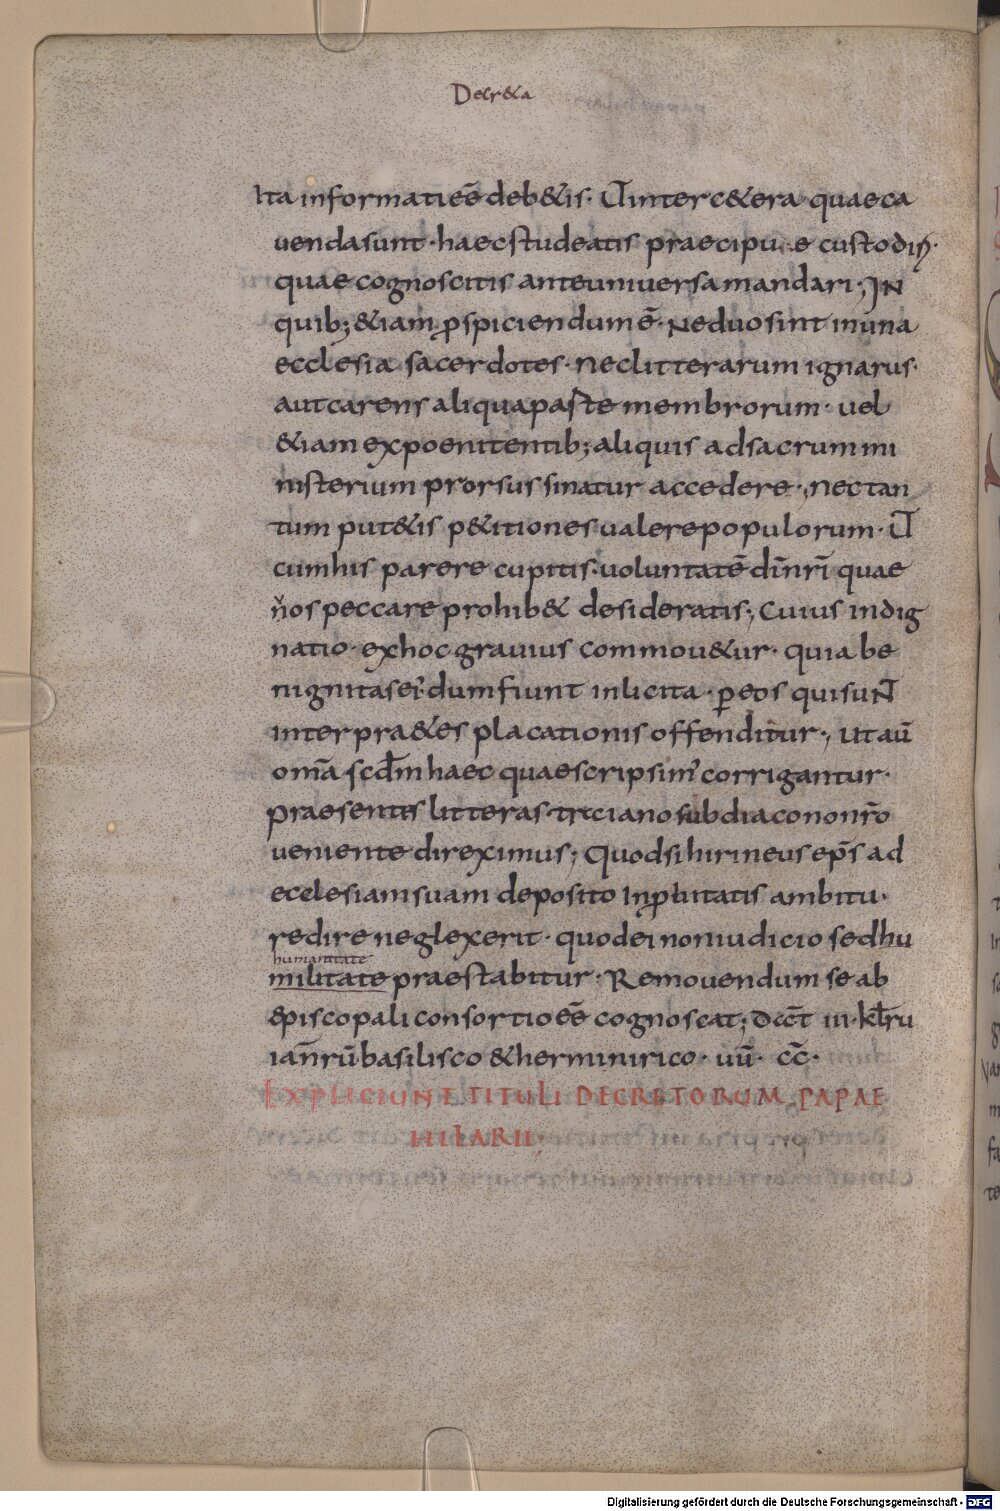 Decr&a
Ita informati eē deb&is· Ut inter c&era quae ca
uenda sunt· haec studeatis praecipuae custodiri·
quae cognoscitis ante uniuersa mandari; IN
quib; &iam pspiciendum ē· Ne duo sint in una
ecclesia sacerdotes· nec litterarum ignarus·
aut carens aliqua paste membrorum· uel
&iam ex poenitentib; aliquis ad sacrum mi
nisterium prorsus sinatur accedere·, nec tan
tum put&is p&itiones ualere populorum· Ut
cum his parere cupitis· uoluntatē dīnrī quae
nos peccare prohib& desideratis; Cuius indig
natio· ex hoc grauius commou&ur· quia be
nignitas ei· dum fiunt inlicita· p eos qui suNT
interpr&es placationis offenditur·, ut aū
omā scdm haec quae scripsim' corrigantur·
praesentis litteras· trciano subdiacono nr̄o
ueniente direximus; Quod si hirineus ep̄s ad
ecclesiam suam deposito inprbitatis ambitu·
redire neglexerit· quod ei non iudicio sed hu
humanitate
militate praestabitur· Remouendum se ab
episcopali consortio eē cognoscat; Dat̄ iii· kl̄ ru
ian̄rū basilisco & herminirico· uū· cc̄·
EXPLICIUNT TITULI DECRETORUM PAPAE
HILARII;
Digitalisierung gefördert durch die Deutsche Forschungsgemeinschaft - DFG